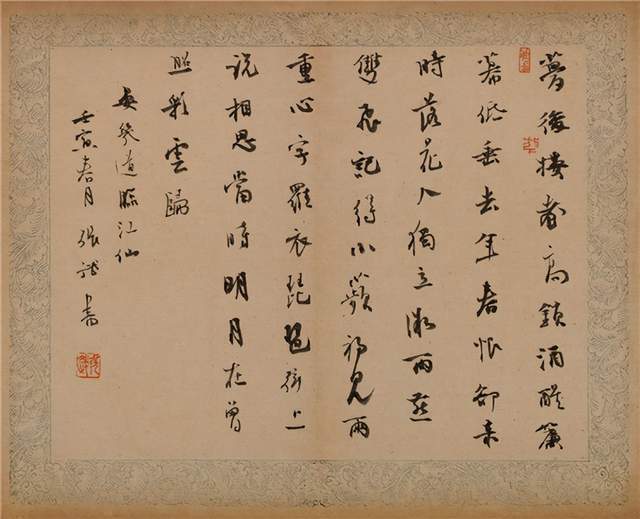 夢後樓臺高鎖酒醒簾
幕低垂去年春恨卻來
時落花人獨立微雨燕
雙飛記得小蘋初見兩
重心字羅衣琵琶弦上
説相思當時明月在曾
照彩雲歸
晏幾道臨江仙
壬寅春月張書